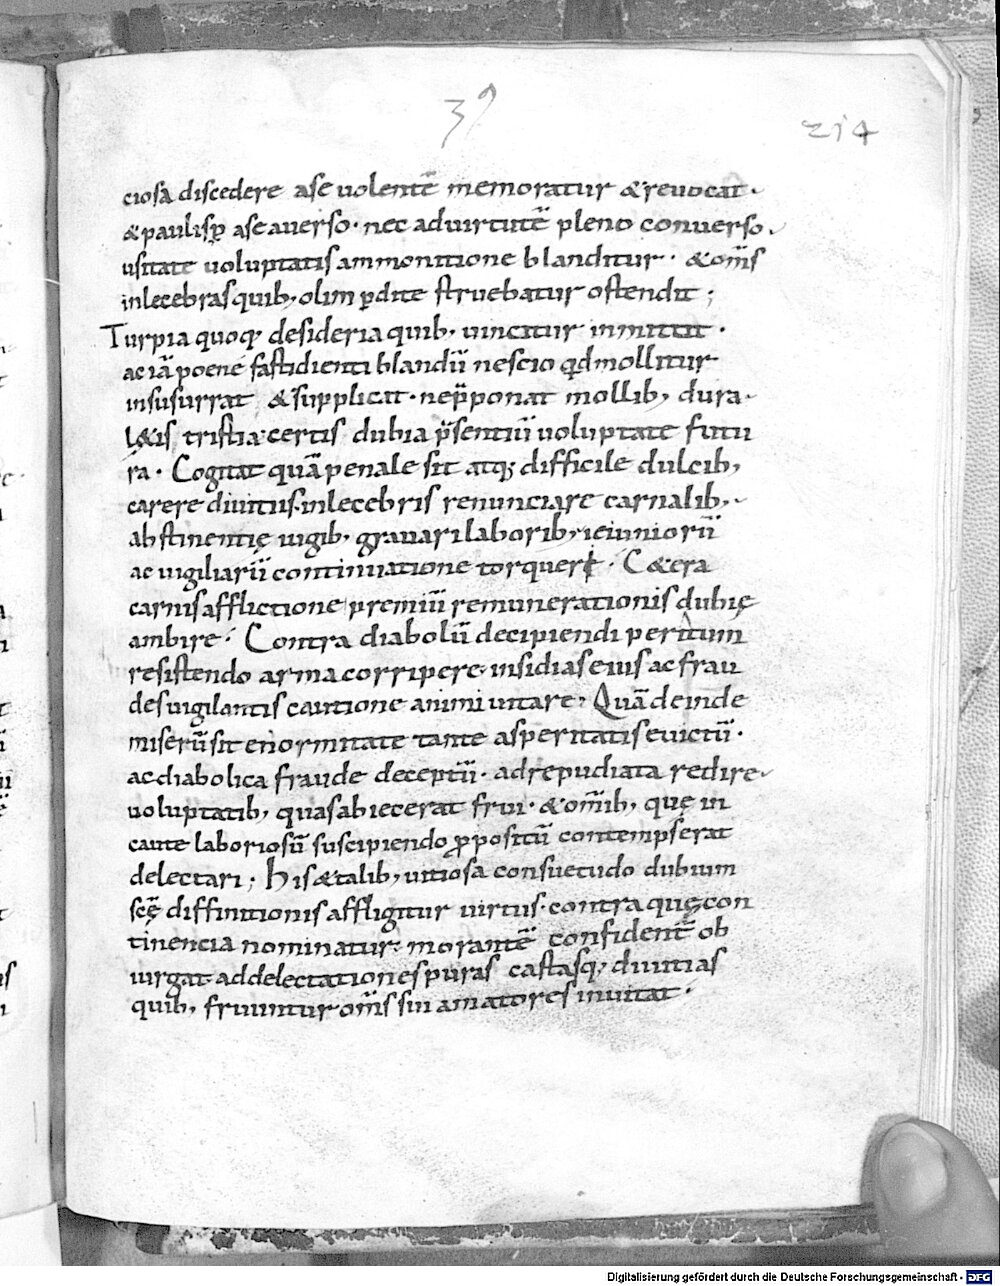 39
214
ciosa discedere ase uolentē memoratur &reuocat·
&paulisꝑ aseauerso· nec aduirtutē pleno conuerso·
usitate uoluptatis ammonitione blanditur· &om̄s
inlecebras quib; olim ꝑdite struebatur ostendit;
Turpia quoq; desideria quib; uincitur inmittit·
ac iā poene fastidienti blandū nescio qd mollitur
insusurrat &supplicat· nep̄ponat mollib; dura·
l&is tristia· certis dubia p̄sentiū uoluptate futu
ra· Cogitat quā penale sit atq; difficile dulcib;
carere diuitiis· inlecebris renunciare carnalib;·
abstinentię uigib; grauari laborib; ieiuniorū
ac uigiliarū continuatione torqueri· C&era
carnis afflictione premiū remunerationis dubię
ambire· Contra diabolū decipiendi peritum
resistendo arma corripere· insidias eius ac frau
des uigilantis cautione animi uitare· Quā deinde
miserū sit enormitate tante asperitatis euictū·
ac diabolica fraude deceptū· adrepudiata redire·
uoluptatib; quas abiecerat frui· &om̄ib; quę in
caute laboriosū suscipiendo ꝓpositū contempserat
delectari; His &talib; uitiosa consuetudo dubium
scę diffinitionis affligitur uirtus· contra quę con
tinencia nominatur· morantē confident̄ ob
iurgat· ad delectationes puras castasq; diuitias
quib; fruuntur om̄s sui amatores inuitat·
Digitalisierung gefördert durch die Deutsche Forschungsgemeinschaft - DFG